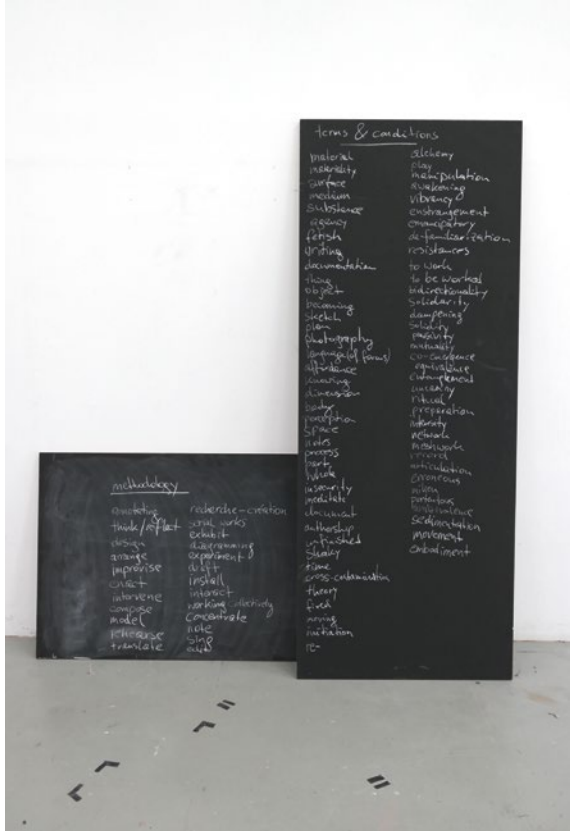 methodology
annotating
think/reflect
design
arrange
improvise
enact
intervene
compose
model
rehearse
translate
recherche-création
serial works
exhibit
diagramming
experiment
draft
install
interact
working collectively
concentrate
note
sing
edit
terms & conditions
material
materiality
surface
medium
substance
agency
fetish
writing
documentation
thing
object
becoming
sketch
plan
photography
language (of forms)
affordance
knowing
dimension
body
perception
space
notes
process
part
whole
insecurity
meditate
document
authorship
unfinished
shaky
time
cross-contamination
theory
fixed
moving
initiation
re-
alchemy
play
manipulation
awakening
vibrancy
enstrangement
emancipatory
de-familiarization
resistances
to work
to be worked
bidirectionality
solidarity
dampening
solidity
passivity
mutuality
co-emergence
equivalence
entanglement
uncanny
ritual
preparation
intensity
network
meshwork
record
articulation
erroneous
portentous
sedimentation
movement
embodiment